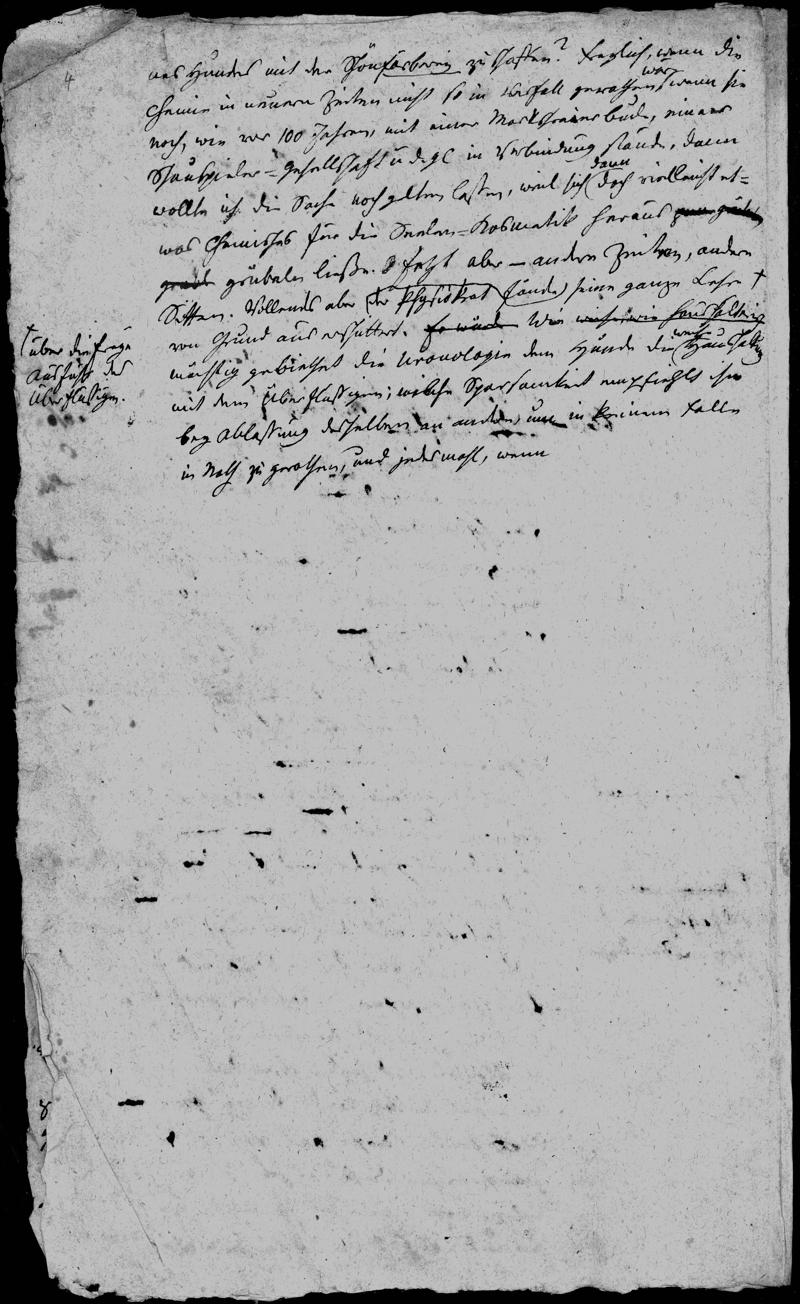 4
des Hundes mit der Schönfärberey zu schaffen? Freylich, wenn die
Chemie in neuern Zeiten nicht so in Verfall gerathen wär, wenn sie
noch, wie vor 100 Jahren, mit einer Marktschreierbude, einer
Schauspieler-Gesellschaft u dgl in Verbindung stände, dann
wollte ich die Sache noch gelten lassen, weil sich dann doch vielleicht et-
was Chemisches für die Seelen-Kosmetik heraus
grübeln ließe. Jetzt aber — andere Zeiten, andere
Sitten. Vollends aber der Physiokrat fände seine ganze Lehre †
von Grund aus erschüttert. So würde Wie haushälterisch
mächtig gebiethet die Uronologie dem Hunde die Haushaltung
mit dem Überflüssigen; welche Sparsamkeit empfiehlt sie
bey Ablassung desselben an andere, um in keinem Falle
in Noth zu gerathen, und jedesmahl, wenn
† über die freye
Ausfuhr des
Überflüssigen.